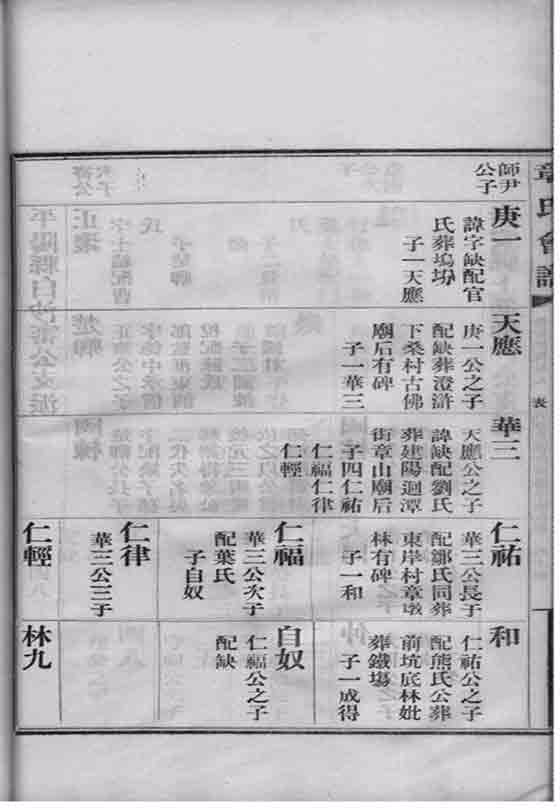 章氏會譜
表
師尹
公子
庚一
諱字缺配官
氏葬塢㘭
子一天應
天應
庚一公之子
配缺葬澄滸
下桑村古佛
廟后有碑
子一華三
華三
天應公之子
諱缺配劉氏
葬建陽迴潭
街章山廟后
子四仁祐
仁福仁律
仁輕
仁祐
華三公長子
配鄒氏同葬
東岸村章墩
林有碑
子一和
仁福
華三公次子
配葉氏
子自奴
仁律
華三公三子
仁輕
和
仁祐公之子
配熊氏公葬
前坑底林妣
葬鐵塲
子一成得
自奴
仁福公之子
配缺
林九